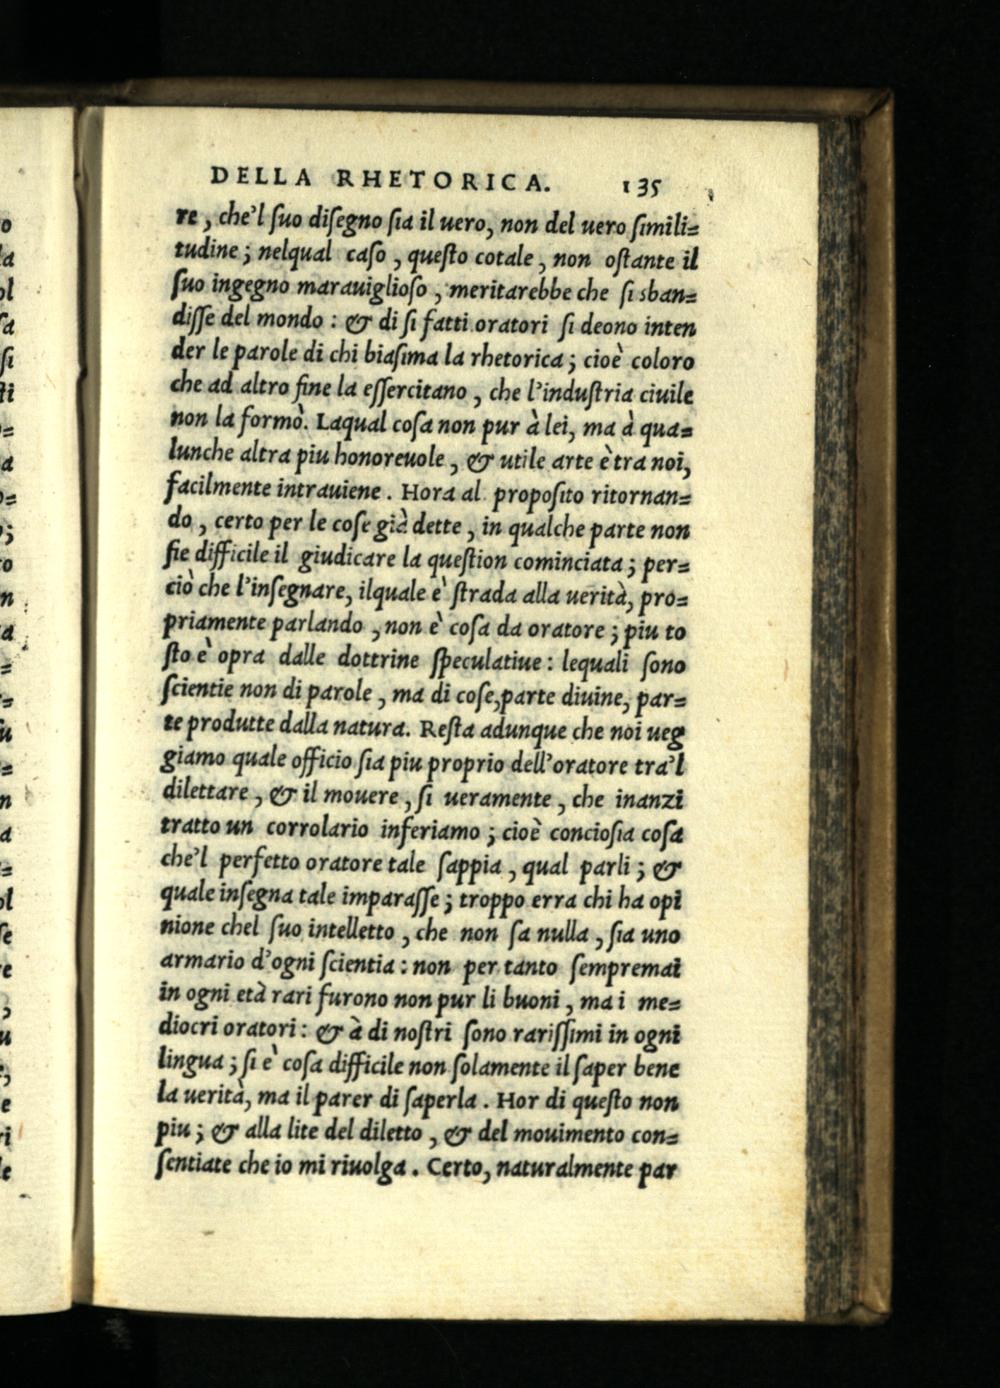 DELLA RHETORICA. 135
re, che'l ſuo diſegno ſia il uero, non del uero ſimili=
tudine; nelqual caſo, queſto cotale, non oſtante il
ſuo ingegno marauiglioſo, meritarebbe che ſi sban=
diſſe del mondo: & di ſi fatti oratori ſi deono inten
der le parole di chi biaſima la rhetorica; cioè coloro
che ad altro fine la eſſercitano, che l'induſtria ciuile
non la formò. Laqual coſa non pur à lei, ma à qua=
lunche altra piu honoreuole, & utile arte è tra noi,
facilmente intrauiene. Hora al propoſito ritornan=
do, certo per le coſe già dette, in qualche parte non
fie difficile il giudicare la queſtion cominciata; per=
ciò che l'inſegnare, ilquale è ſtrada alla uerità, pro=
priamente parlando, non è coſa da oratore; piu to
ſto è opra dalle dottrine ſpeculatiue: lequali ſono
ſcientie non di parole, ma di coſe, parte diuine, par=
te produtte dalla natura. Reſta adunque che noi ueg
giamo quale officio ſia piu proprio dell'oratore tra'l
dilettare, & il mouere, ſi ueramente, che inanzi
tratto un corrolario inferiamo; cioè concioſia coſa
che'l perfetto oratore tale ſappia, qual parli; &
quale inſegna tale imparaſſe; troppo erra chi ha opi
nione chel ſuo intelletto, che non ſa nulla, ſia uno
armario d'ogni ſcientia: non per tanto ſempremai
in ogni età rari furono non pur li buoni, ma i me=
diocri oratori: & à di noſtri ſono rariſſimi in ogni
lingua; ſi è coſa difficile non ſolamente il ſaper bene
la uerità, ma il parer di ſaperla. Hor di queſto non
piu; & alla lite del diletto, & del mouimento con=
ſentiate che io mi riuolga. Certo, naturalmente par